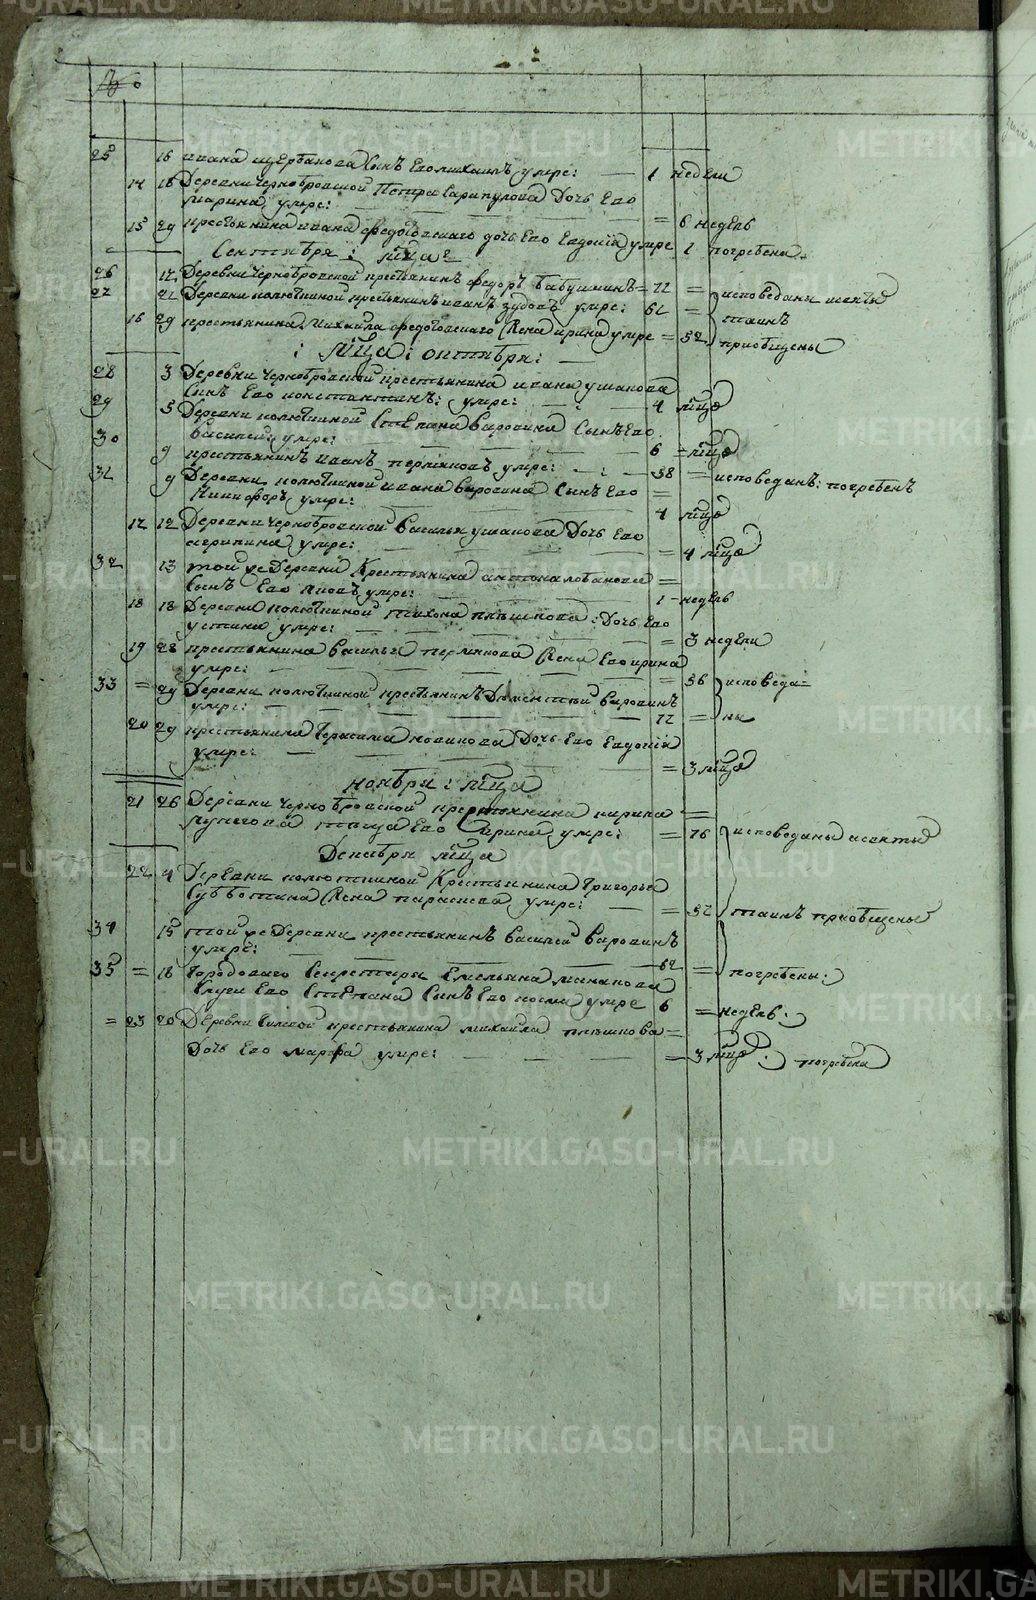 №
25 16 ивана щербакова сынъ Его михаилъ умре: 1 недели
14 16 Деревни Чернобровской Петра Сарапулова Дочь Его
марина умре: 6 недель
15 29 крестьянина ивана федоговскаго дочь Его Евдокія умре 1 погребена
Сентября: мца
26 12 Деревни Чернобровской крестьянинъ федоръ бабушкинъ 72 исповеданы исвяты
27 21 Деревни полютиной крестьянинъ иванъ зудовъ умре: 61 таинъ
16 29 крестьянина михайла федоговскаго жена ирина умре 32 приобщены
: мца: октября:
28 3 Деревни Чернобровской крестьянина ивана ушакова
сынъ Его константинъ: умре: 4 мца
29 5 Деревни полютиной Степана Варовина сынъ Его
василей умре: 6 мца
30 9 крестьянинъ иванъ пермяковъ умре: 38 исповеданъ: погребенъ
31 9 Деревни полютиной ивана Варовина сынъ Его
Никифоръ умре: 4 мца
17 12 Деревни Чернобровской Василья ушакова Дочь Его
агрипина умре: 4 мца
32 13 той же Деревни Крестьянина антона лобанова
сынъ Его яковъ умре: 1 недель
18 18 Деревни полютиной тихона плешкова: Дочь Его
устинья умре: 3 недели
19 28 крестьянина Василья пермякова жена Его ирина
умре: 36 исповеда=
33 29 Деревни полютиной крестьянинъ Дементей Варовинъ
умре: 72 ны
20 29 крестьянина Герасима новикова Дочь Его Евдокія
умре: 3 мца
ноября: мца
21 26 Деревни Чернобровской крестьянина кирила
лунегова теща Его Ирина умре: 76 исповеданы исвятыхъ
Декабря мца
22 4 Деревни полютиной Крестьянина Григорья
Субботина жена параскева умре: 37 таинъ приобщены
34 15 той же Деревни крестьянинъ василей Варовинъ
умре: 62 погребены:
35 18 городоваго Секретаря Емельяна
слуги Его Степана сынъ Его косма умре 6 недель:
23 20 Деревни крестьянина михайла плешкова
Дочь Его марфа умре: 3 мца: погребена
METRIKI.GASO-URAL.RU